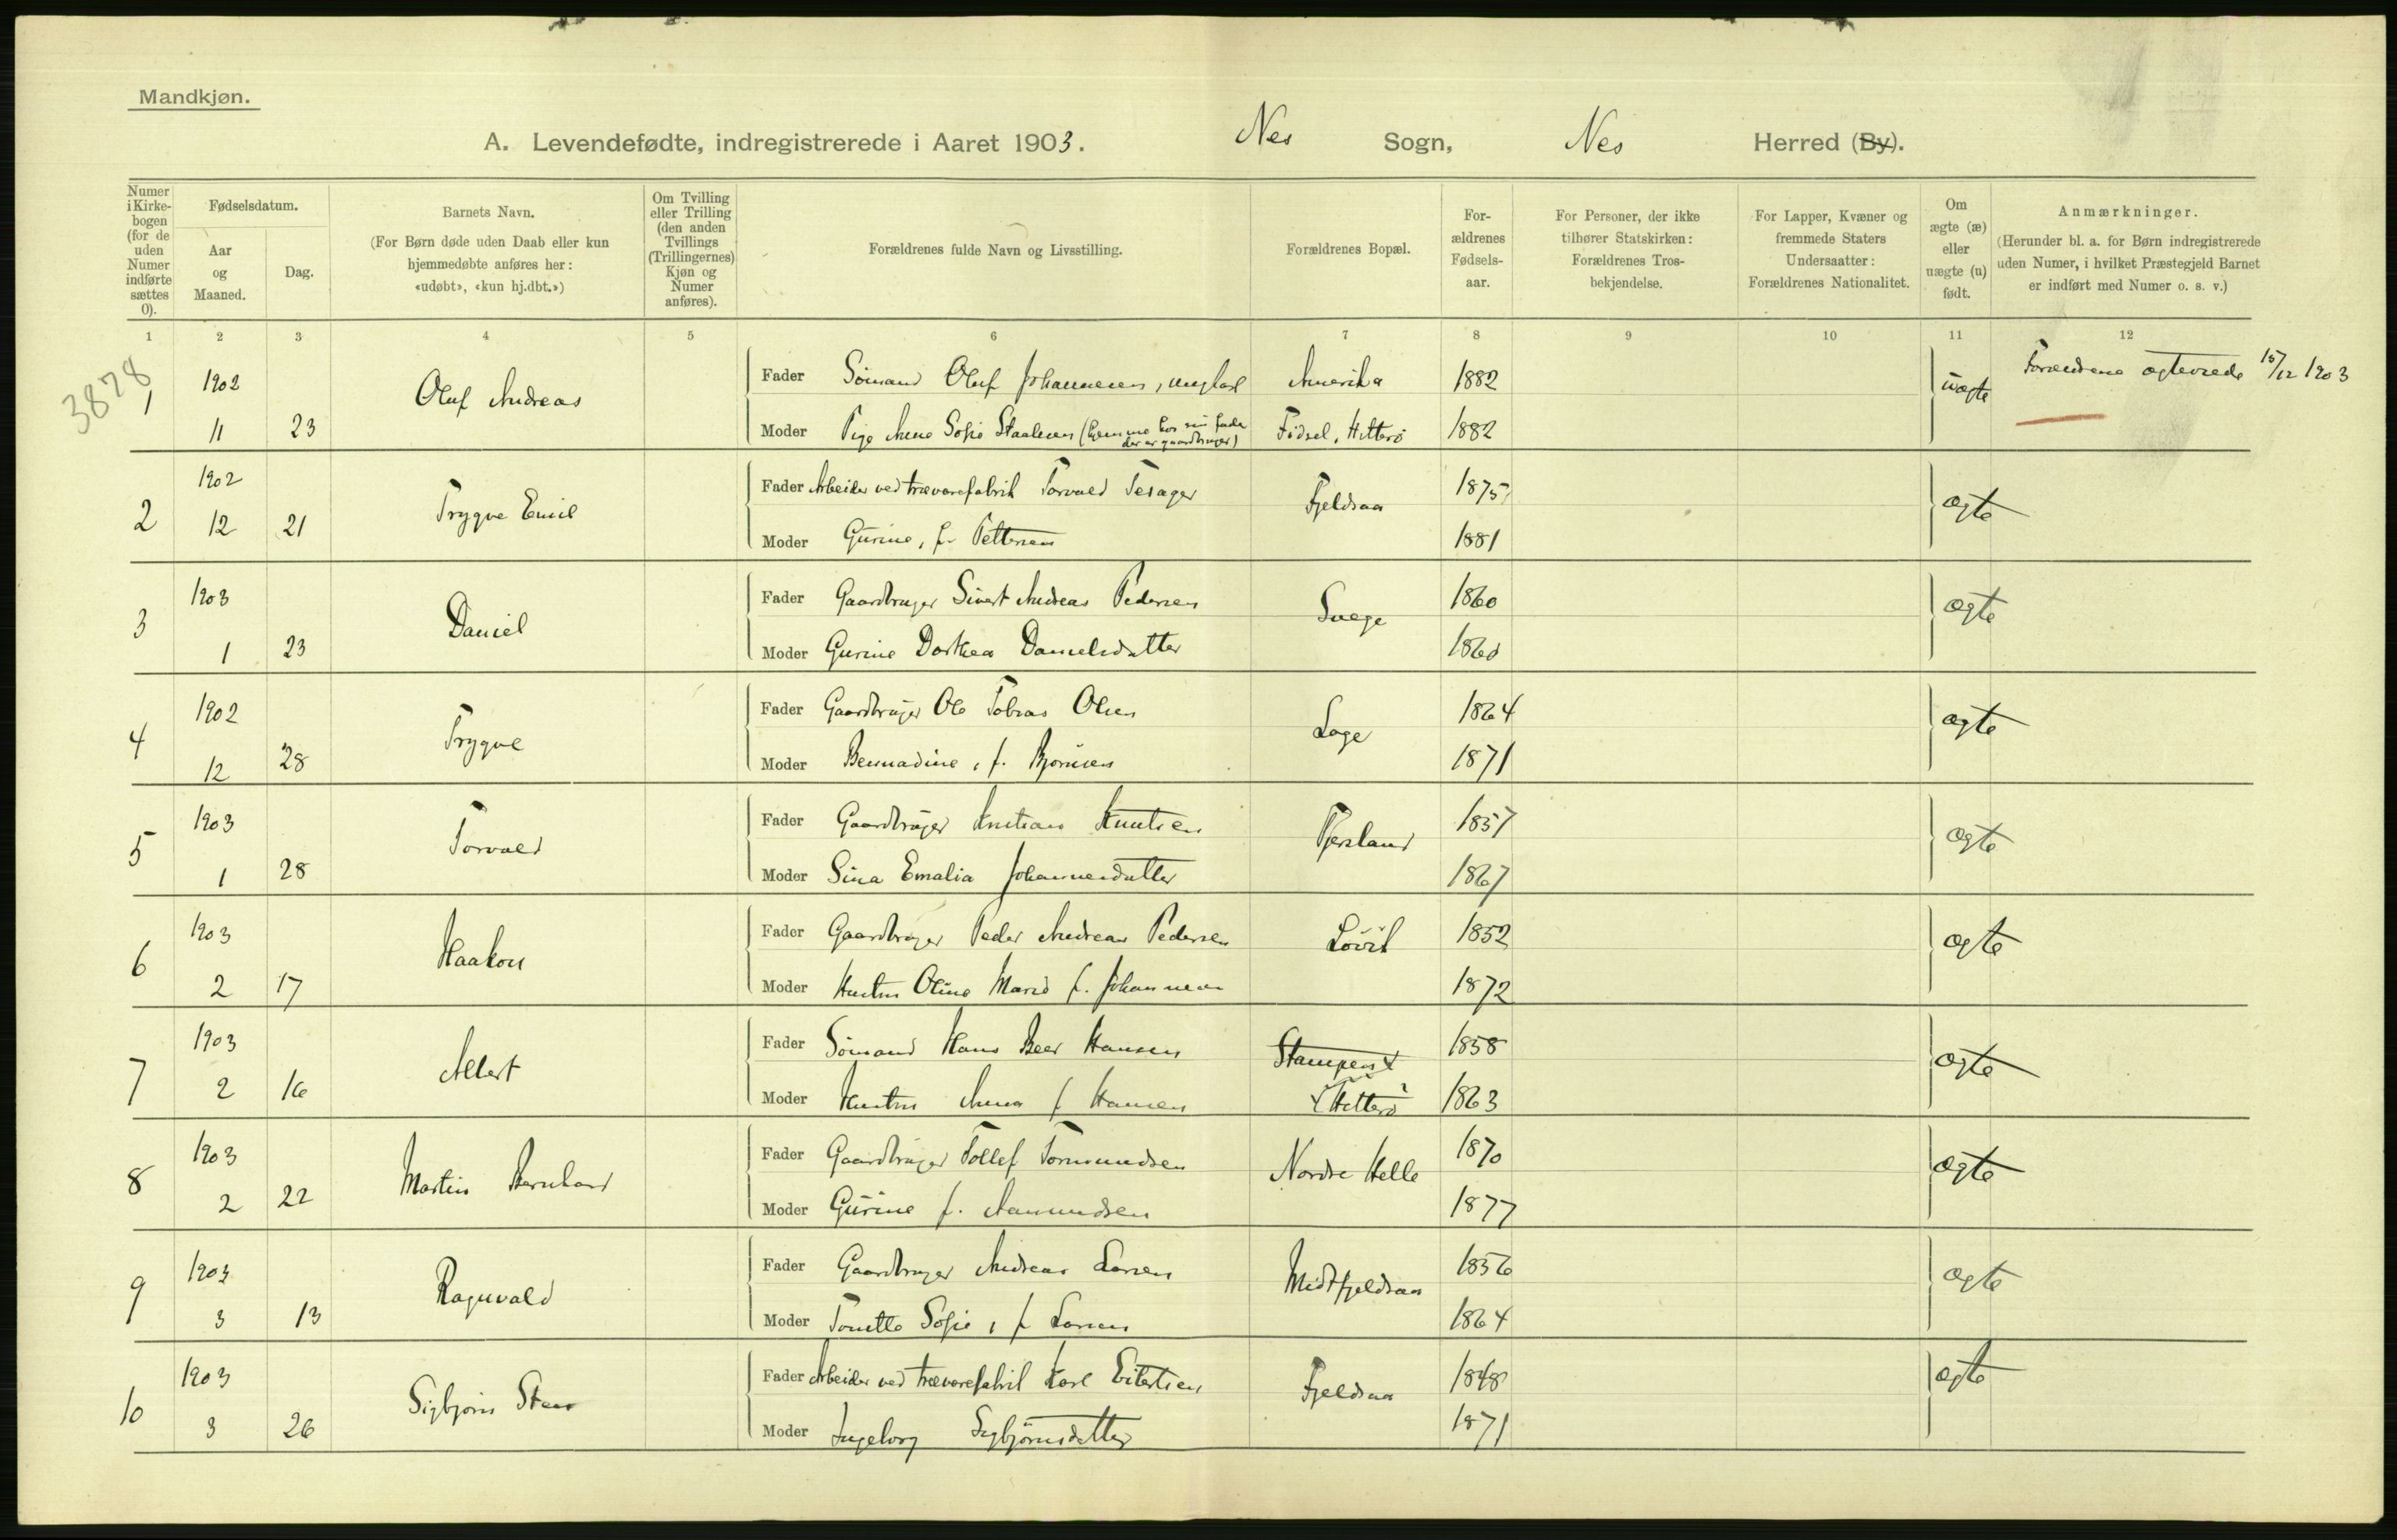 Mandkjøn.
A. Levendefødte, indregistrerede i Aaret 1903. Nes Sogn, Nes Herred (By).
Numer i Kirkebogen (for de uden Numer indførte sættes 0).
Fødselsdatum.
Aar og Maaned.
Dag.
Barnets Navn.
(For Børn døde uden Daab eller kun
hjemmedøbte anføres her:
«udøbt», «kun hj.dbt.»)
Om Tvilling
eller Trilling
(den anden
Tvillings
(Trillingernes)
Kjøn og
Numer
anføres).
Forældrenes fulde Navn og Livsstilling.
Forældrenes Bopæl.
For-
ældrenes
Fødsels-
aar.
For Personer, der ikke
tilhører Statskirken:
Forældrenes Tros-
bekjendelse.
For Lapper, Kvæner og
fremmede Staters
Undersaatter:
Forældrenes Nationalitet.
Om
ægte (æ)
eller
uægte (u)
født.
Anmærkninger.
(Herunder bl. a. for Børn indregistrerede
uden Numer, i hvilket Præstegjeld Barnet
er indført med Numer o. s. v.)
1 2 3 4 5 6 7 8 9 10 11 12
3878
1 1902 11 23 Oluf Andreas
Fader Sømand Oluf Johannesen, ungkarl Amerika 1882 uægte Forældrene ægteviede 15/12 1903
Moder Pige Anne Sofie Staalesen (hjemme hos sin fader der er gaardbruger) Fidsel, Hitterø 1882
2 1902 12 21 Trygve Emil
Fader Arbeider ved trævarefabrik Torvald Tesager Fjeldsaa 1875 ægte
Moder Gurine, f. Pettersen 1881
3 1903 1 23 Daniel
Fader Gaardbruger Sivert Andreas Pedersen Svege 1860 ægte
Moder Gurine Dorthea Danielsdatter 1860
4 1902 12 28 Trygve
Fader Gaardbruger Ole Tobias Olsen Loge 1864 ægte
Moder Bernadine, f. Bjørnsen 1871
5 1903 1 28 Torvald
Fader Gaardbruger Kristian Knutsen Fjersland 1857 ægte
Moder Sina Emalia Johannesdatter 1867
6 1903 2 17 Haakon
Fader Gaardbruger Peder Andreas Pedersen Løvik 1852 ægte
Moder Hustru Oline Marie f. Johannesen 1872
7 1903 2 16 Albert
Fader Sømand Hans Beer Hansen Stampen 1858 ægte
Moder Hustru Anna f Hansen Hitterø 1863
8 1903 2 22 Martin Bernhard
Fader Gaardbruger Tollef Tormundsen Nordre Helle 1870 ægte
Moder Gurine f. Aamundsen 1877
9 1903 3 13 Ragnvald
Fader Gaardbruger Andreas Larsen Midtfjeldsaa 1856 ægte
Moder Tonette Sofie, f Larsen 1864
10 1903 3 26 Sigbjørn Steen
Fader Arbeider ved trævarefabrik Karl Eilertsen Fjeldsaa 1848 ægte
Moder Ingeborg Sigbjørnsdatter 1871